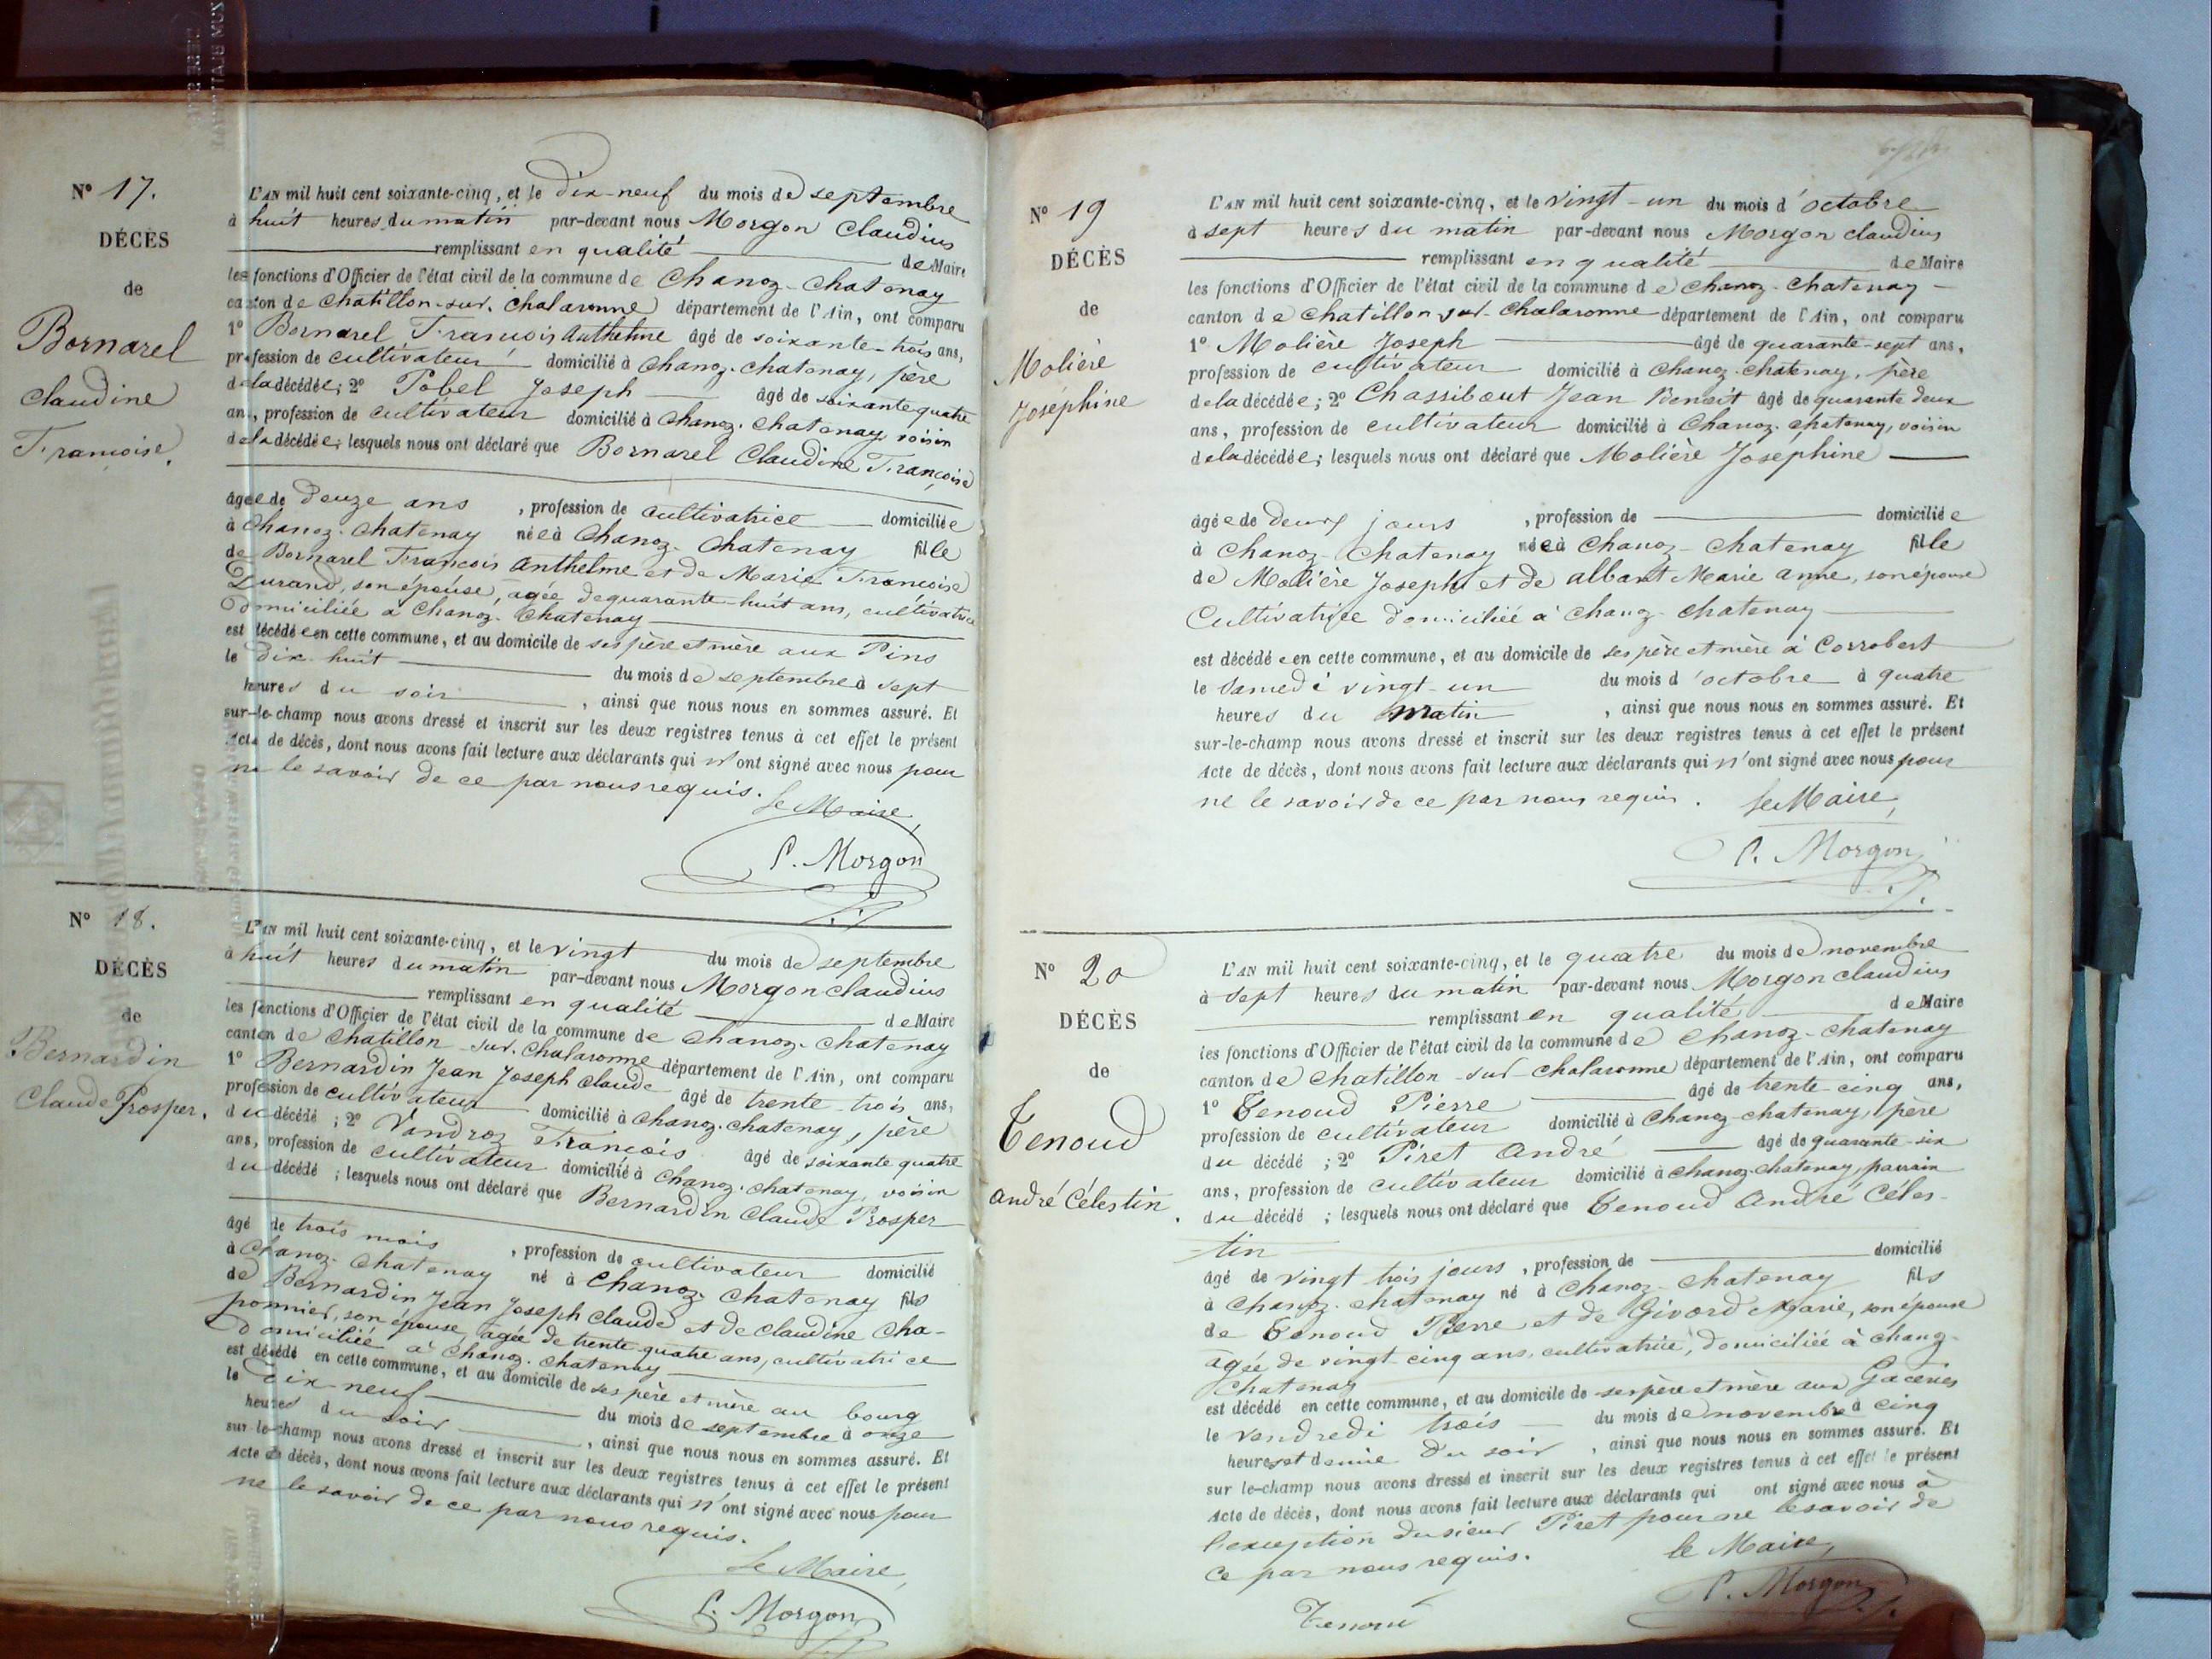 N° 17.
DÉCÈS
de
Bornarel
Claudine
Françoise.
L'AN mil huit cent soixante-cinq, et le dix-neuf du mois de septembre
à huit heures du matin par-devant nous Morgon Claudius
remplissant en qualité de Maire
les fonctions d'Officier de l'état civil de la commune de Chanoz-Chatenay
canton de Chatillon-sur-Chalaronne département de l'Ain, ont comparu
1° Bornarel François Anthelme âgé de soixante-trois ans,
profession de cultivateur domicilié à Chanoz-Chatenay, père
de la décédée; 2° Pobel Joseph âgé de soixante quatre
ans, profession de cultivateur domicilié à Chanoz-Chatenay, voisin
de la décédée; lesquels nous ont déclaré que Bornarel Claudine Françoise
âgée de douze ans, profession de cultivatrice domiciliée
à Chanoz-Chatenay née à Chanoz-Chatenay fille
de Bornarel François Anthelme et de Marie Françoise
Durand, son épouse, agée de quarante-huit ans, cultivatrice
domiciliée à Chanoz-Chatenay
est décédée en cette commune, et au domicile de ses père et mère aux Pins
le dix-huit du mois de septembre à sept
heures du soir, ainsi que nous nous en sommes assuré. Et
sur-le-champ nous avons dressé et inscrit sur les deux registres tenus à cet effet le présent
Acte de décès, dont nous avons fait lecture aux déclarants qui n'ont signé avec nous pour
ne le savoir de ce par nous requis.
Le Maire,
C. Morgon
N° 18.
DÉCÈS
de
Bernardin
Claude Prosper.
L'AN mil huit cent soixante-cinq, et le vingt du mois de septembre
à huit heures du matin par-devant nous Morgon Claudius
remplissant en qualité de Maire
les fonctions d'Officier de l'état civil de la commune de Chanoz-Chatenay
canton de Chatillon-sur-Chalaronne département de l'Ain, ont comparu
1° Bernardin Jean Joseph Claude âgé de trente-trois ans,
profession de cultivateur domicilié à Chanoz-Chatenay, père
du décédé; 2° Vandroz François âgé de soixante quatre
ans, profession de cultivateur domicilié à Chanoz-Chatenay, voisin
du décédé; lesquels nous ont déclaré que Bernardin Claude Prosper
âgé de trois mois, profession de cultivateur domicilié
à Chanoz-Chatenay né à Chanoz-Chatenay fils
de Bernardin Jean Joseph Claude et de Claudine Cha-
ponnier, son épouse, agée de trente-quatre ans, cultivatrice
domiciliée à Chanoz-Chatenay
est décédé en cette commune, et au domicile de ses père et mère au bourg
le dix-neuf du mois de septembre à onze
heures du soir, ainsi que nous nous en sommes assuré. Et
sur-le-champ nous avons dressé et inscrit sur les deux registres tenus à cet effet le présent
Acte de décès, dont nous avons fait lecture aux déclarants qui n'ont signé avec nous pour
ne le savoir de ce par nous requis.
Le Maire,
C. Morgon
N° 19
DÉCÈS
de
Molière
Joséphine
L'AN mil huit cent soixante-cinq, et le vingt-un du mois d'octobre
à sept heures du matin par-devant nous Morgon Claudius
remplissant en qualité de Maire
les fonctions d'Officier de l'état civil de la commune de Chanoz-Chatenay
canton de Chatillon-sur-Chalaronne département de l'Ain, ont comparu
1° Molière Joseph âgé de quarante-sept ans,
profession de cultivateur domicilié à Chanoz-Chatenay, père
de la décédée; 2° Chassibout Jean Benoit âgé de quarante deux
ans, profession de cultivateur domicilié à Chanoz-Chatenay, voisin
de la décédée; lesquels nous ont déclaré que Molière Joséphine
âgée de deux jours, profession de domiciliée
à Chanoz-Chatenay née à Chanoz-Chatenay fille
de Molière Joseph et de Albant Marie Anne, son épouse
Cultivatrice domiciliée à Chanoz-Chatenay
est décédée en cette commune, et au domicile de ses père et mère à Corrobert
le samedi vingt-un du mois d'octobre à quatre
heures du matin, ainsi que nous nous en sommes assuré. Et
sur-le-champ nous avons dressé et inscrit sur les deux registres tenus à cet effet le présent
Acte de décès, dont nous avons fait lecture aux déclarants qui n'ont signé avec nous pour
ne le savoir de ce par nous requis. Le Maire,
C. Morgon
N° 20
DÉCÈS
de
Tenoud
André Célestin.
L'AN mil huit cent soixante-cinq, et le quatre du mois de novembre
à sept heures du matin par-devant nous Morgon Claudius
remplissant en qualité de Maire
les fonctions d'Officier de l'état civil de la commune de Chanoz-Chatenay
canton de Chatillon-sur-Chalaronne département de l'Ain, ont comparu
1° Tenoud Pierre âgé de trente-cinq ans,
profession de cultivateur domicilié à Chanoz-Chatenay, père
du décédé; 2° Piret André âgé de quarante-six
ans, profession de cultivateur domicilié à Chanoz-Chatenay, parrain
du décédé; lesquels nous ont déclaré que Tenoud André Céles-
tin
âgé de vingt trois jours, profession de domicilié
à Chanoz-Chatenay né à Chanoz-Chatenay fils
de Tenoud Pierre et de Givord Marie, son épouse
agée de vingt-cinq ans, cultivatrice, domiciliée à Chanoz-
Chatenay
est décédé en cette commune, et au domicile de ses père et mère aux
le vendredi trois du mois de novembre à cinq
heures et demie du soir, ainsi que nous nous en sommes assuré. Et
sur le-champ nous avons dressé et inscrit sur les deux registres tenus à cet effet le présent
Acte de décès, dont nous avons fait lecture aux déclarants qui ont signé avec nous à
l'exception du sieur Piret pour ne le savoir de
ce par nous requis. Le Maire,
Tenoud C. Morgon